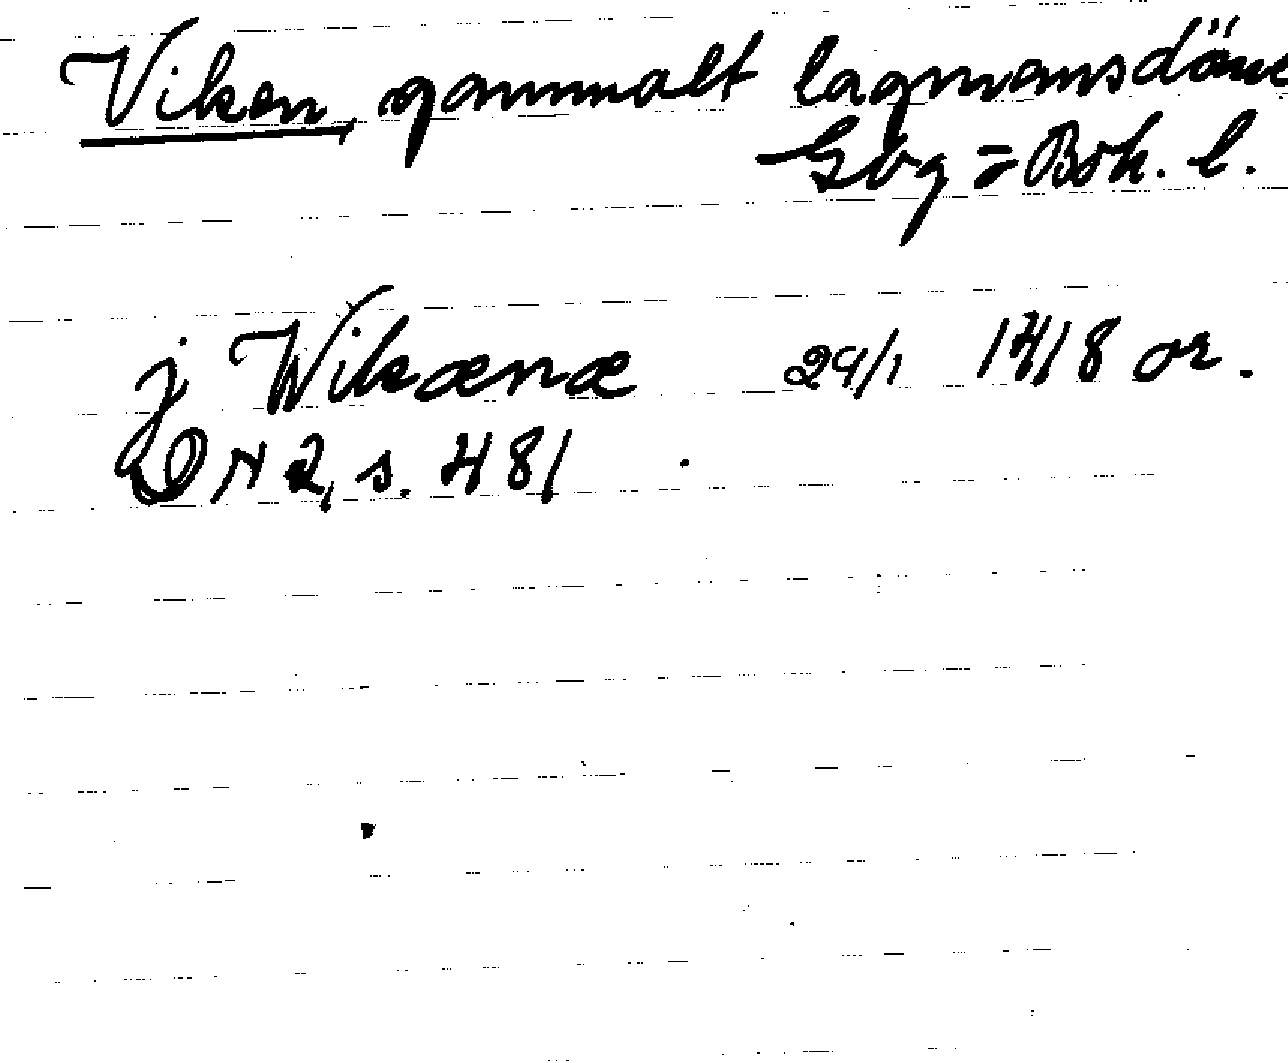 Viken, gammalt lagmansdöme
Gbg = Boh. l.
j Wikænæ 29/1 1418 or.
DN 2, s. 481